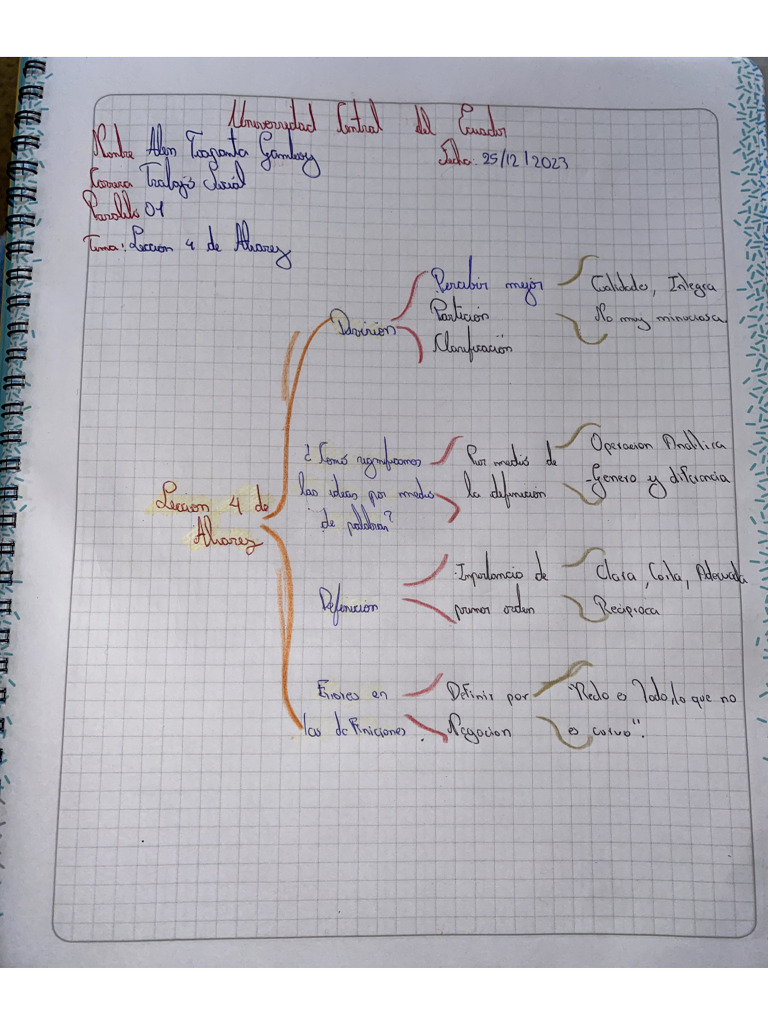 Universidad Central del Ecuador
Nombre Alen Toapanta Gamboy
Fecha: 25/12/2023
Carrera Trabajo Social
Paralelo 01
Tema: Leccion 4 de Alvarez
Leccion 4 de
Alvarez
División
Percibir mejor
Partición
Clasificación
Calidades, Integra
No muy minuciosa
¿Comó significamos
las ideas por medio
de palabras?
Por medio de
la definición
Operacion Analitica
-Genero y diferencia
Definición
Importancia de
primer orden
Clara, Corta, Adecuada
Reciproca
Errores en
las definiciones
Definir por
Negacion
"Recto es Todo, lo que no
es curvo".